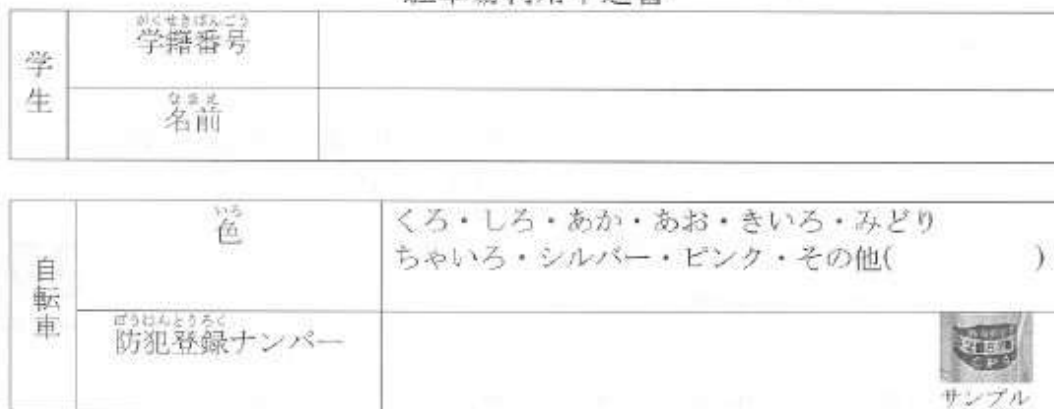 がくせきばんごう
学籍番号
学生
なまえ
名前
いろ
色
くろ・しろ・あか・あお・きいろ・みどり
ちゃいろ・シルバー・ピンク・その他(　　　　)
自転車
ぼうはんとうろく
防犯登録ナンバー
サンプル